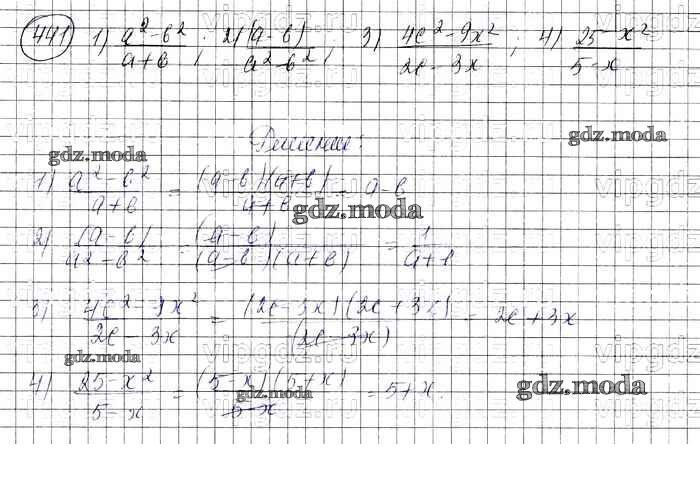 441 1) (a² - b²)/(a + b); 2) (a - b)/(a² - b²); 3) (4c² - 9x²)/(2c - 3x); 4) (25 - x²)/(5 - x)
gdz.moda
Решение:
gdz.moda
1) (a² - b²)/(a + b) = ((a - b)(a + b))/(a + b) = a - b
gdz.moda
2) (a - b)/(a² - b²) = (a - b)/((a - b)(a + b)) = 1/(a + b)
3) (4c² - 9x²)/(2c - 3x) = ((2c - 3x)(2c + 3x))/(2c - 3x) = 2c + 3x
gdz.moda
4) (25 - x²)/(5 - x) = ((5 - x)(5 + x))/(5 - x) = 5 + x.
gdz.moda
gdz.moda
vipgdz.ru